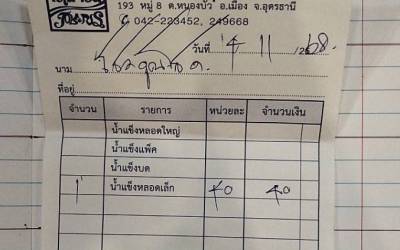 193 หมู่ 8 ต.หนองบัว อ.เมือง จ.อุดรธานี
042-223452, 249668
วันที่ 4 11 /2568
นาม
ที่อยู่
จำนวน รายการ หน่วยละ จำนวนเงิน
น้ำแข็งหลอดใหญ่
น้ำแข็งแพ็ค
น้ำแข็งบด
1 น้ำแข็งหลอดเล็ก 40 40